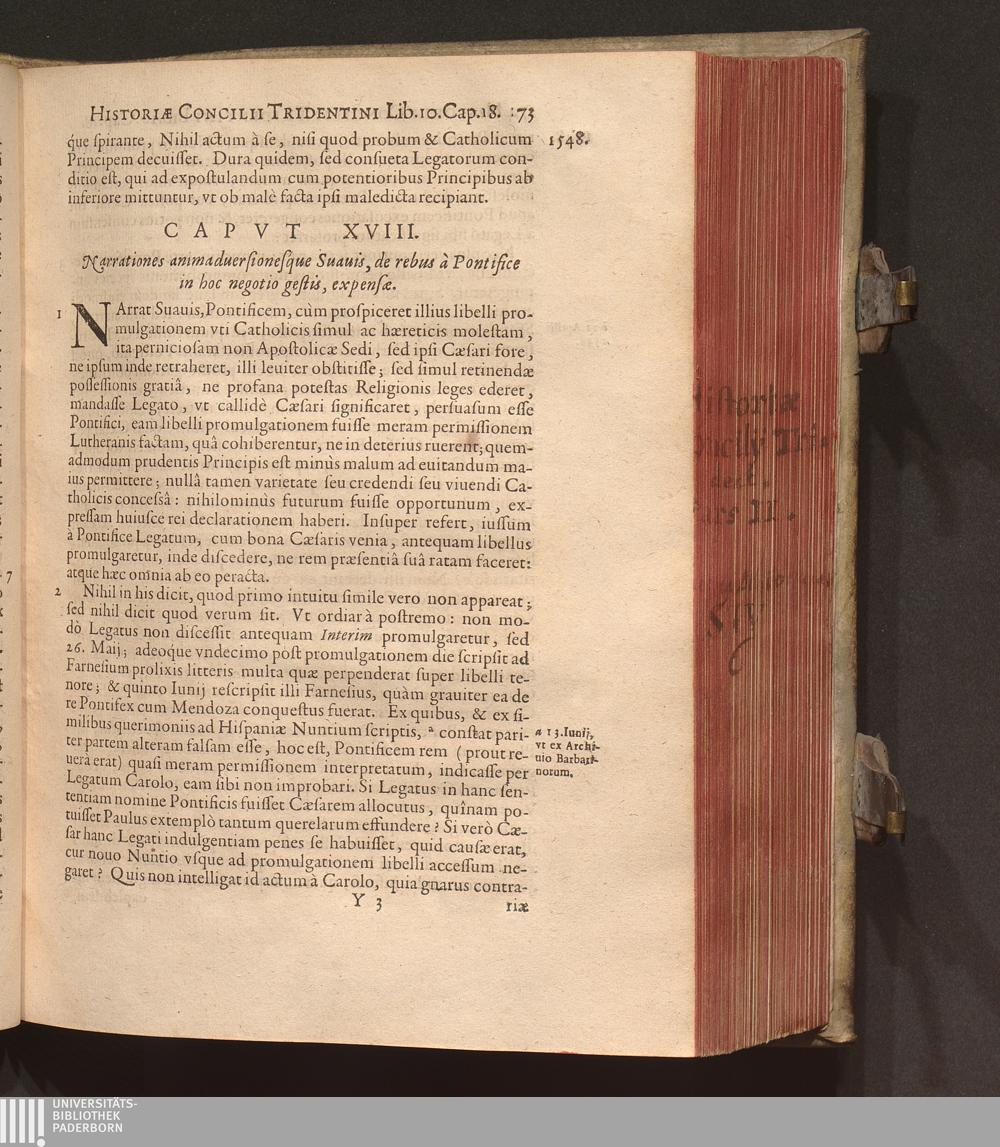 HISTORIÆ CONCILII TRIDENTINI Lib.10.Cap.18. :73
q́ue ſpirante, Nihil actum à ſe, niſi quod probum & Catholicum
1548.
Principem decuiſſet. Dura quidem, ſed conſueta Legatorum con-
ditio eſt, qui ad expoſtulandum cum potentioribus Principibus ab
inferiore mittuntur, vt ob malè facta ipſi maledicta recipiant.
CAPVT XVIII.
Narrationes animaduerſioneſque Suauis, de rebus à Pontifice
in hoc negotio geſtis, expenſæ.
1 NArrat Suauis, Pontificem, cùm proſpiceret illius libelli pro-
mulgationem vti Catholicis ſimul ac hæreticis moleſtam,
ita pernicioſam non Apoſtolicæ Sedi, ſed ipſi Cæſari fore,
ne ipſum inde retraheret, illi leuiter obſtitiſſe; ſed ſimul retinendæ
poſſeſſionis gratiâ, ne profana poteſtas Religionis leges ederet,
mandaſſe Legato, vt callidè Cæſari ſignificaret, perſuaſum eſſe
Pontifici, eam libelli promulgationem fuiſſe meram permiſſionem
Lutheranis factam, quâ cohiberentur, ne in deterius ruerent; quem-
admodum prudentis Principis eſt minùs malum ad euitandum ma-
ius permittere; nullâ tamen varietate ſeu credendi ſeu viuendi Ca-
tholicis conceſſâ: nihilominùs futurum fuiſſe opportunum, ex-
preſſam huiuſce rei declarationem haberi. Inſuper refert, iuſſum
à Pontifice Legatum, cum bona Cæſaris venia, antequam libellus
promulgaretur, inde diſcedere, ne rem præſentiâ ſuâ ratam faceret:
atque hæc omnia ab eo peracta.
2 Nihil in his dicit, quod primo intuitu ſimile vero non appareat;
ſed nihil dicit quod verum ſit. Vt ordiar à poſtremo: non mo-
dò Legatus non diſceſſit antequam Interim promulgaretur, ſed
26. Maij; adeoque vndecimo pòſt promulgationem die ſcripſit ad
Farneſium prolixis litteris multa quæ perpenderat ſuper libelli te-
nore; & quinto Iunij reſcripſit illi Farneſius, quàm grauiter ea de
re Pontifex cum Mendoza conqueſtus fuerat. Ex quibus, & ex ſi-
milibus querimoniis ad Hiſpaniæ Nuntium ſcriptis, ª conſtat pari-
ter partem alteram falſam eſſe, hoc eſt, Pontificem rem (prout re-
uera erat) quaſi meram permiſſionem interpretatum, indicaſſe per
Legatum Carolo, eam ſibi non improbari. Si Legatus in hanc ſen-
tentiam nomine Pontificis fuiſſet Cæſarem allocutus, quînam po-
tuiſſet Paulus extemplò tantum querelarum effundere? Si verò Cæ-
ſar hanc Legati indulgentiam penes ſe habuiſſet, quid cauſæ erat,
cur nouo Nuntio vſque ad promulgationem libelli acceſſum ne-
garet? Quis non intelligat id actum à Carolo, quia gnarus contra-
a 13. Iunij,
vt ex Archi-
uio Barbari-
norum.
Y 3
riæ
Hiſtoriæ
Concilij Tri-
dent.
Pars II.
UNIVERSITÄTS-
BIBLIOTHEK
PADERBORN